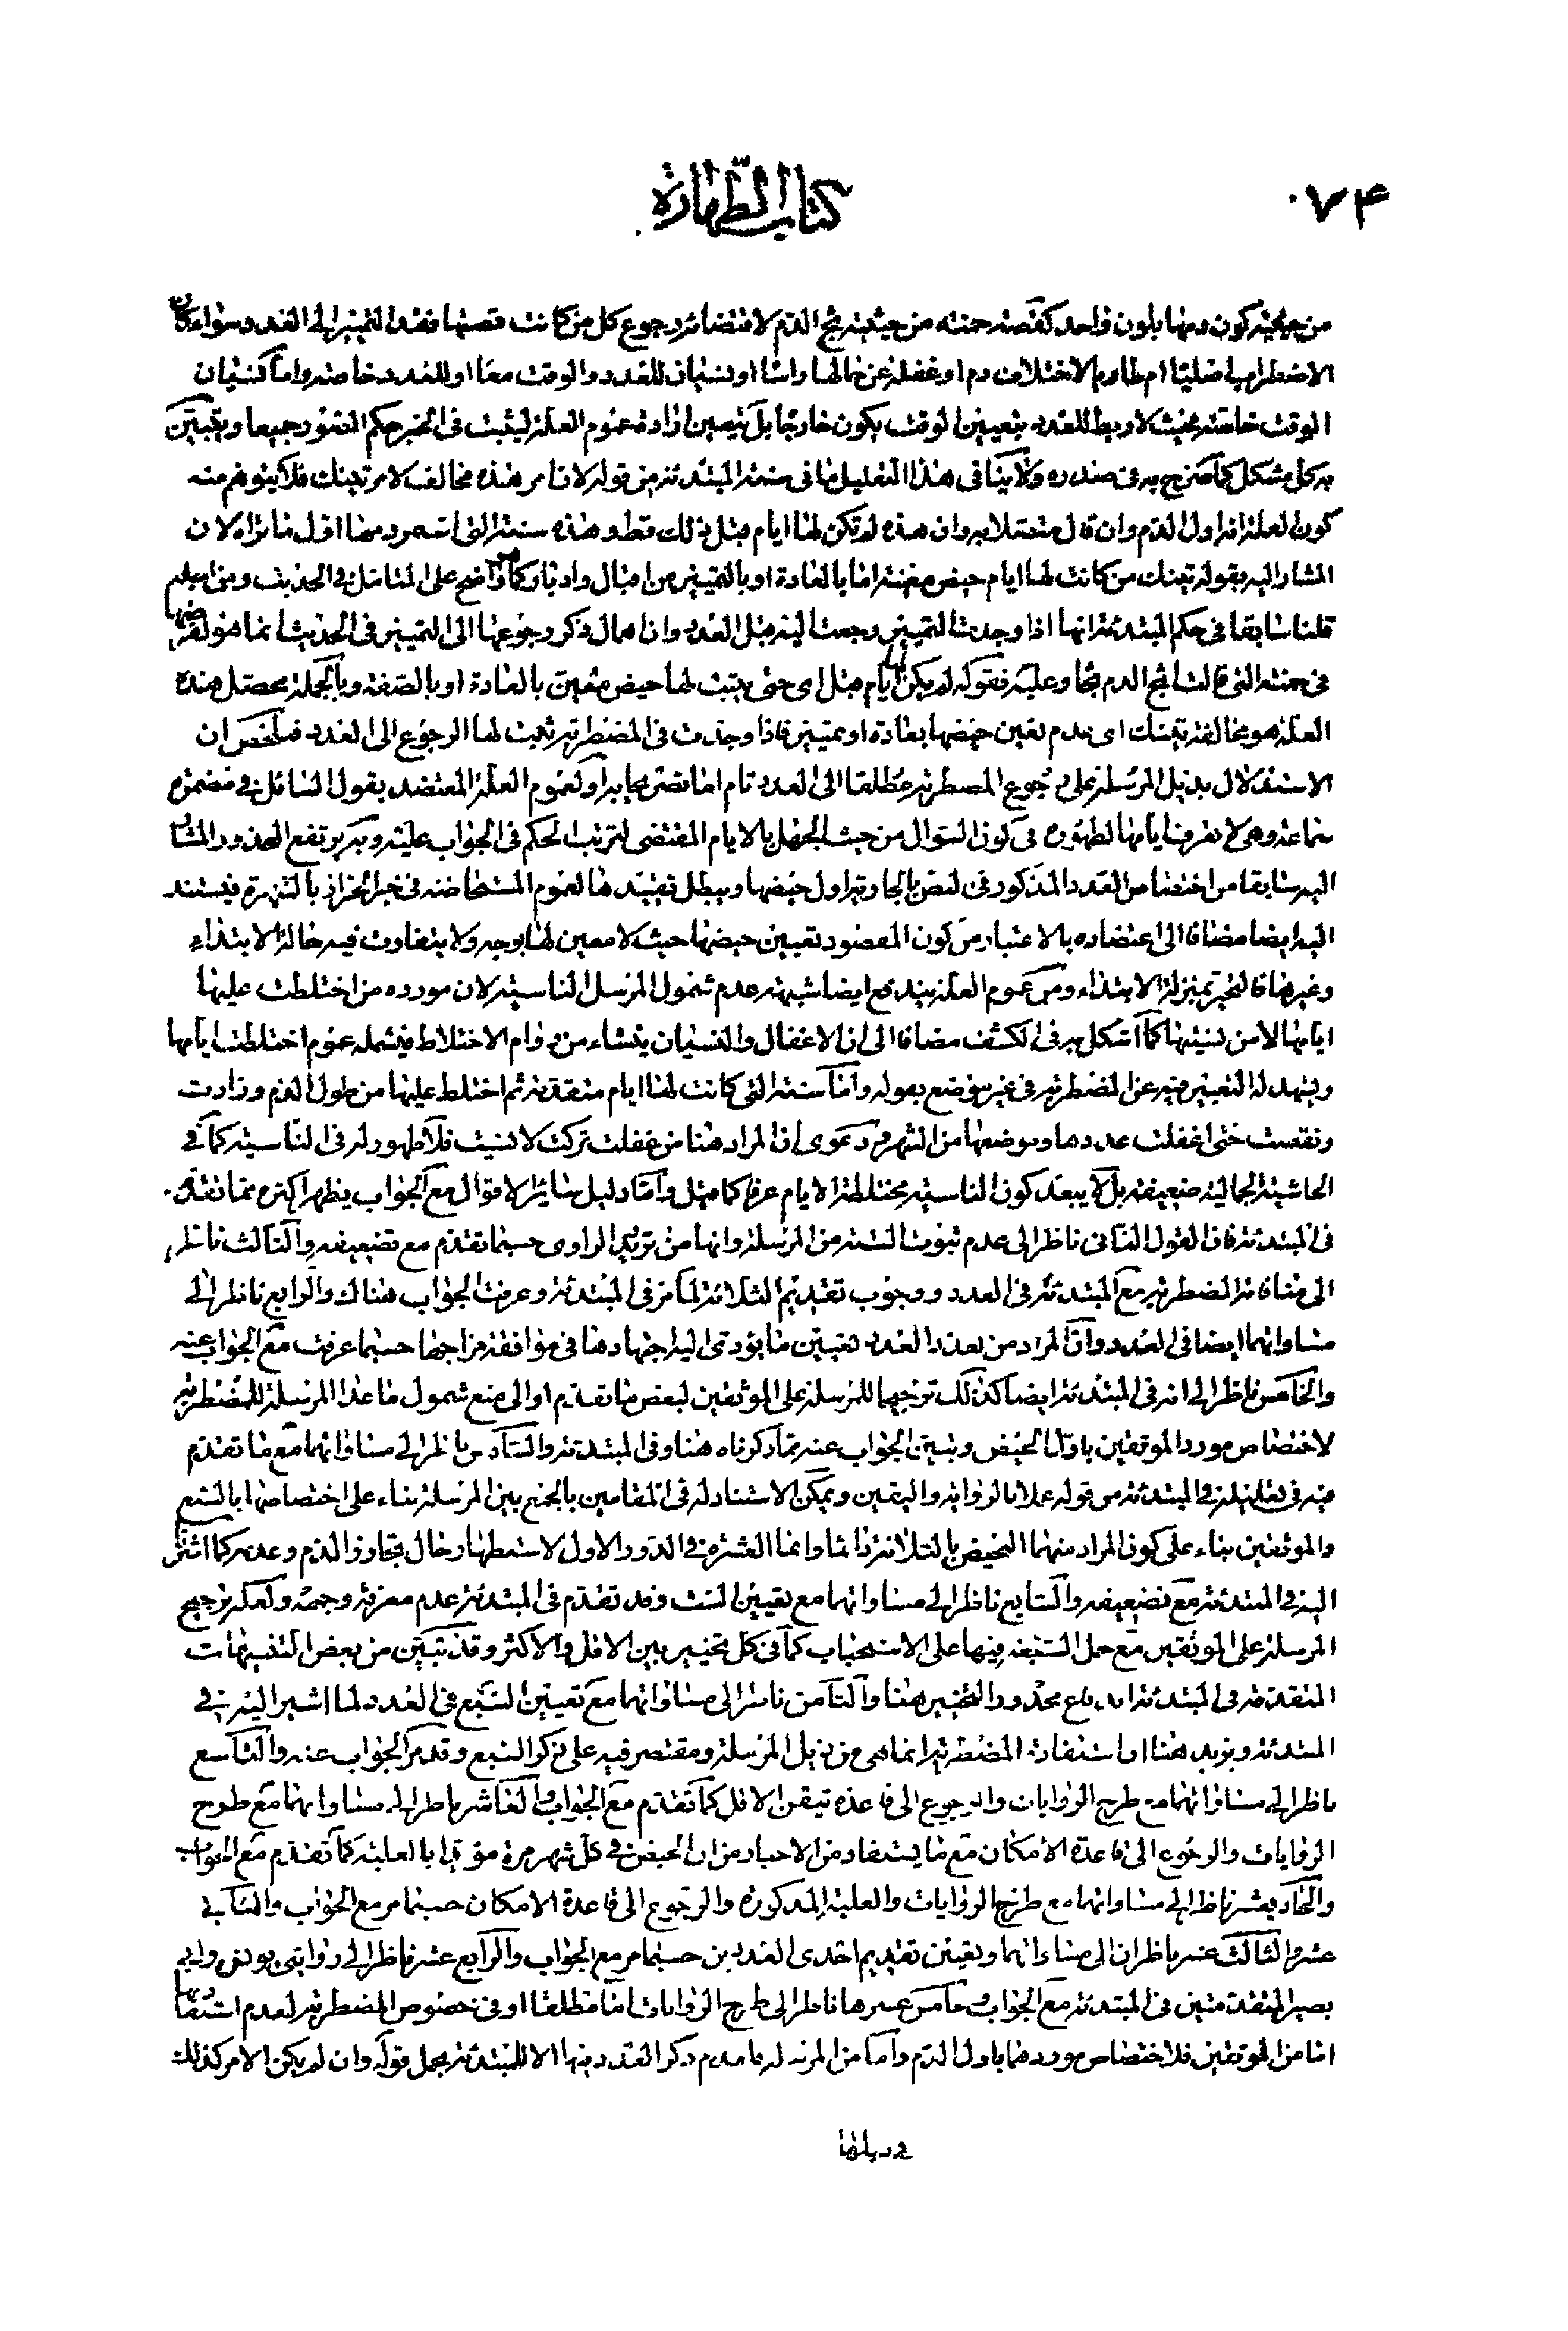 ٠٧۴
كتاب الطّهارة
من حيثية كون دمها بلون واحد كقصة حمنة من حيثية ثج الدم لاقتضائه رجوع كل من كانت قصتها فقد التميز الى العدد سواء كان
الاضطراب اصليا ام طاريا لاختلاف دم او غفلة عن حالها راسا او نسيان للعدد والوقت معا او للعدد خاصة واما كنسيان
الوقت خاصة بحيث لا ربط للعدد بتعيين الوقت يكون خارجا بل تعيين ارادة عموم العلة ليثبت في الخبر حكم الصور جميعا ويتبين
به كل مشكل كما صرح به في صدره ولا ينافى هذا التعليل ما في سنة المبتدئة من قوله لان امر هذه مخالف لامر تينك فلا يتوهم منه
كون العلة اول الدم وان قال متصلا به وان هذه لم تكن لها ايام قبل ذلك قط وهذه سنة التى استمر دمها اول ما تراه لان
المشار اليه بقوله تينك من كانت لها ايام حيض معينة اما بالعادة او بالتميز من اقبال وادبار كما هو واضح على المتامل في الحديث ومن اجله
قلنا سابقا في حكم المبتدئة انها اذا وجدت التمييز رجعت اليه قبل العدد وان اهمال ذكر رجوعها الى التمييز في الحديث انما هو لفرضها
في حمنة التى قالت اثج الدم ثجا وعليه فقوله لم يكن لها ايام قبل اى حتى يثبت لها حيض متعين بالعادة او بالصفة وبالجملة محصل هذه
العلة هو مخالفة تينك اى عدم تعين حيضها بعادة او تمييز فاذا وجدت في المضطربة ثبت لها الرجوع الى العدد فملخص ان
الاستدلال بذيل المرسلة على رجوع المضطربة مطلقا الى العدد تام اما لعموم العلة المعتضد بقول السائل في مضمرة
سماعة وهى لا تعرف ايامها لظهوره في كون السوال من حيث الجهل بالايام المقتضى لترتب الحكم في الجواب عليه وبه يرتفع المحذور المشار
اليه سابقا من اختصاص العدد المذكور في النص بالجارية اول حيضها ويبطل تقييدها لعموم المستحاضة في خبر الخزاز بالشهرة فيستند
اليه ايضا مضافا الى اعتضاده بالاعتبار من كون المقصود تعيين حيضها حيث لا معين لها بوجه ولا يتفاوت فيه حالة الابتداء
وغيرها فالتحير بمنزلة الابتداء ومن عموم العلة يندفع ايضا شبهة عدم شمول المرسل الناسية لان مورده من اختلطت عليها
ايامها لا من نسيتها كما اشكل به في الكشف مضافا الى ان الاغفال والنسيان ينشاء من دوام الاختلاط فيشمله عموم اختلطت ايامها
ويشهد له التعبير فيه عن المضطربة في غير موضع بقوله واما سنة التى كانت لها ايام متقدمة ثم اختلط عليها من طول الدم وزادت
ونقصت حتى اغفلت عددها وموضعها من الشهر ودعوى ان المراد هنا من غفلت تركت لا نسيت فلا ظهور له في الناسية كما في
الحاشية الجمالية ضعيفة بل لا يبعد كون الناسية مختلطة الايام عرفا كما قيل واما دليل سائر الاقوال مع الجواب يظهر اكثره مما تقدم
في المبتدئة فان القول الثانى ناظر الى عدم ثبوت الستة من المرسلة وانها من ترديد الراوى حسبما تقدم مع تضعيفه والثالث ناظر
الى مساواة المضطربة مع المبتدئة في العدد ووجوب تقديم الثلاثة لما مر في المبتدئة وعرفت الجواب هناك والرابع ناظر الى
مساواتهما ايضا في العدد وان المراد من تعدد العدد تعيين ما يؤدى اليه اجتهادها في موافقة مزاجها حسبما عرفت مع الجواب عنه
والخامس ناظر الى انه في المبتدئة ايضا كذلك ترجيحا للمرسلة على الموثقين لبعض ما تقدم او الى منع شمول ما عدا المرسلة للمضطربة
لاختصاص مورد الموثقين باول الحيض وتبين الجواب عنه بما ذكرناه هنا وفي المبتدئة والسادس ناظر الى مساواتهما مع ما تقدم
فيه في تعليله في المبتدئة من قوله عملا بالرواية واليقين ويمكن الاستناد له في المقامين بالجمع بين المرسلة بناء على اختصاصها بالسبع
والموثقين بناء على كون المراد منهما التحيض بالثلاثة دائما وانما العشرة في الدور الاول لاستظهار حال تجاوز الدم وعدمه كما اشير
اليه في المبتدئة مع تضعيفه والسابع ناظر الى مساواتهما مع تعيين الست وقد تقدم في المبتدئة عدم معرفة وجهه ولعله ترجيح
المرسلة على الموثقين مع حمل السبعة فيها على الاستحباب كما في كل تخيير بين الاقل والاكثر وقد تبين من بعض التنبيهات
المتقدمة في المبتدئة اندفاع محذور التخيير هنا والثامن ناظر الى مساواتهما مع تعيين السبع في العدد لما اشير اليه في
المبتدئة ويزيد هنا ان استفادة المضطربة انما هى من ذيل المرسلة ومقتصر فيه على ذكر السبع وقد مر الجواب عنه والتاسع
ناظر الى مساواتهما مع طرح الروايات والرجوع الى قاعدة تيقن الاقل كما تقدم مع الجواب والعاشر ناظر الى مساواتهما مع طرح
الروايات والرجوع الى قاعدة الامكان مع ما يستفاد من الاخبار من ان الحيض في كل شهر مرة مؤيدا بالغلبة كما تقدم مع الجواب
والحاديعشر ناظر الى مساواتهما مع طرح الروايات والغلبة المذكورة والرجوع الى قاعدة الامكان حسبما مر مع الجواب والثانى
عشر والثالث عشر ناظران الى مساواتهما وتعيين تقديم احدى العددين حسبما مر مع الجواب والرابع عشر ناظر الى روايتى يونس وابى
بصير المتقدمتين في المبتدئة مع الجواب وخامس عشرها ناظر الى طرح الروايات اما مطلقا او في خصوص المضطربة لعدم استفادتها
اما من الموثقين فلاختصاص موردهما باول الدم واما من المرسلة فلعدم ذكر العدد فيها الا للمبتدئة بحمل قوله وان لم يكن الامر كذلك
في ذيلها